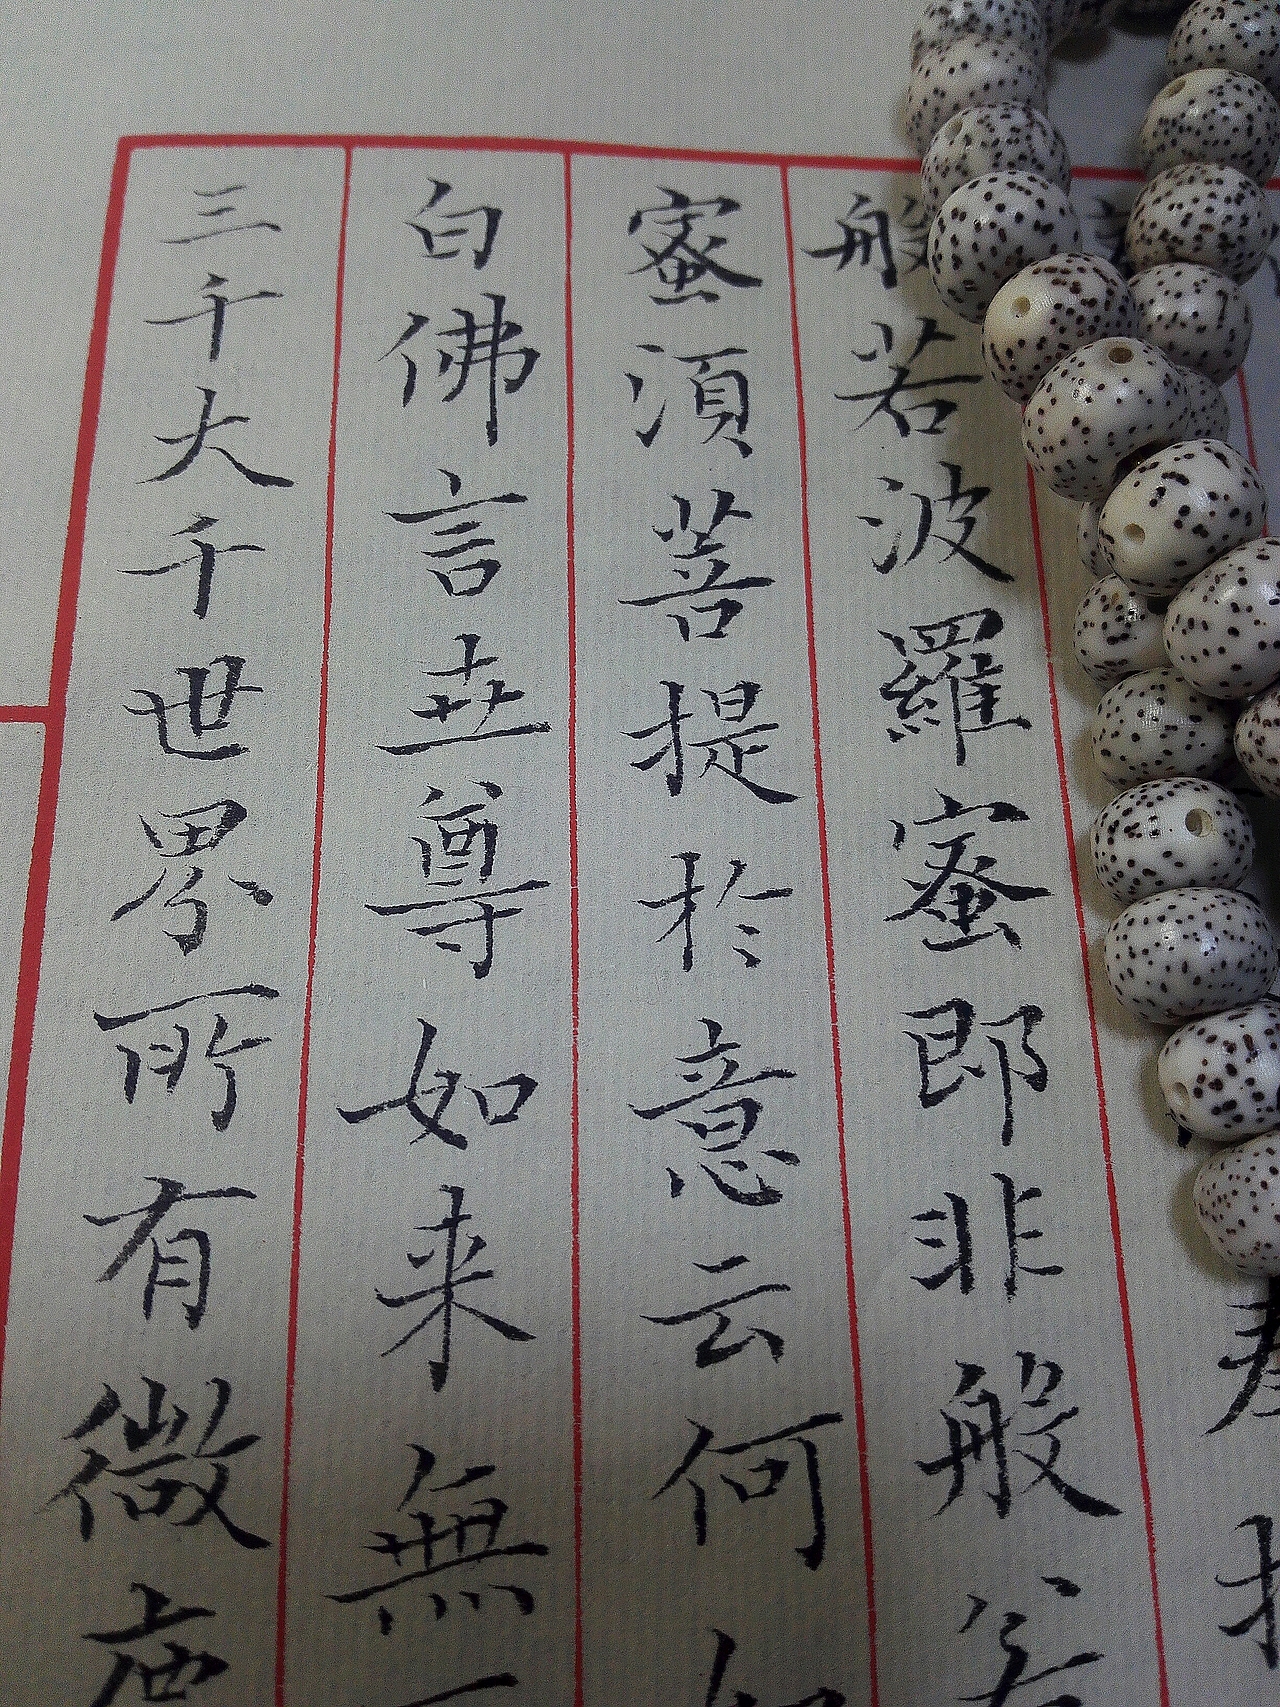 般若波羅蜜即非般若
蜜須菩提於意云何如
白佛言世尊如来無
三千大千世界所有微塵